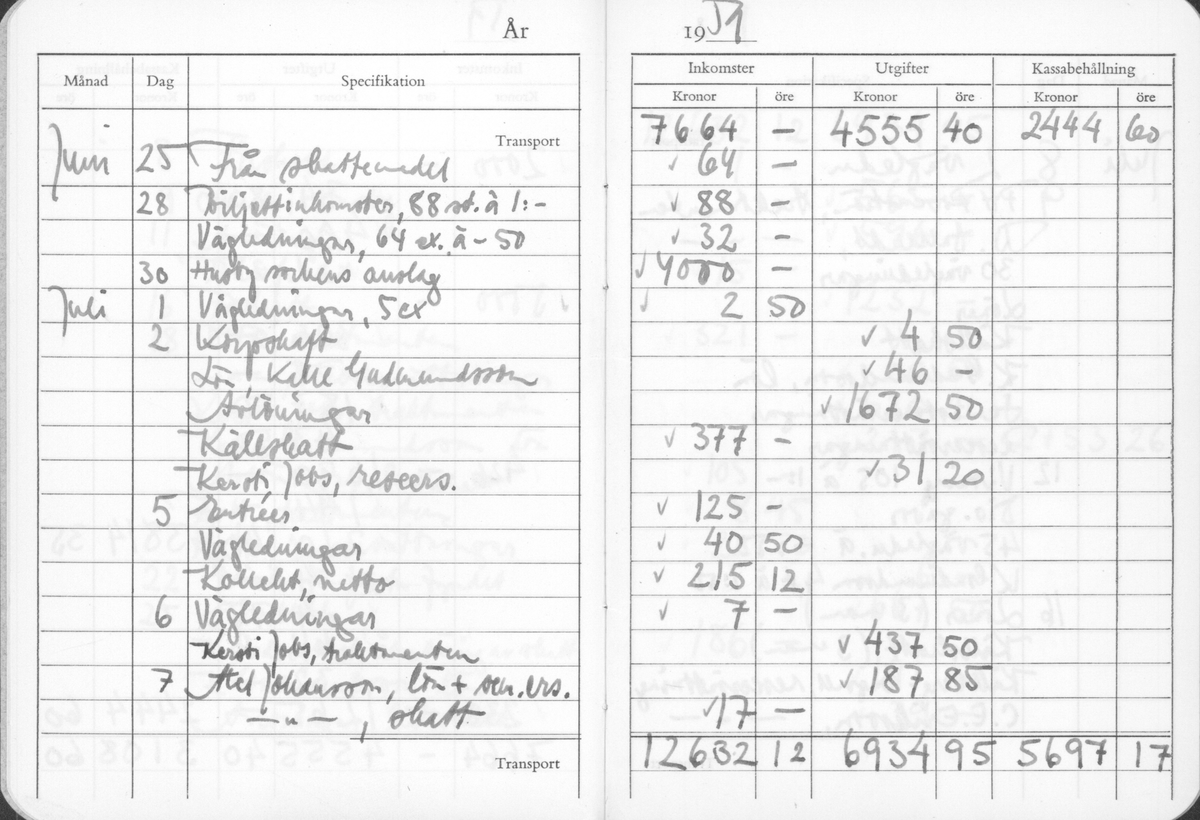 År 1951
Inkomster Utgifter Kassabehållning
Månad Dag Specifikation Kronor öre Kronor öre Kronor öre
Transport 7664 — 4555 40 2444 60
Juni 25 Från skattemedel ✓ 64 —
28 Biljettinkomster, 88 st. à 1:- ✓ 88 —
Vägledningar, 64 ex. à -50 ✓ 32 —
30 Husby sockens anslag ✓ 4000 —
Juli 1 Vägledningar, 5 ex ✓ 2 50
2 Korpskaft ✓ 4 50
Lön, Kalle Gudmundsson ✓ 46 —
Avlöningar ✓ 1672 50
Källskatt ✓ 377 —
Kersti Jobs, reseers. ✓ 31 20
5 Entréer ✓ 125 —
Vägledningar ✓ 40 50
Kollekt, netto ✓ 215 12
6 Vägledningar ✓ 7 —
Kersti Jobs, traktamenten ✓ 437 50
7 Axel Johansson, lön + sem. ers. ✓ 187 85
— " — , skatt ✓ 17 —
Transport 12632 12 6934 95 5697 17